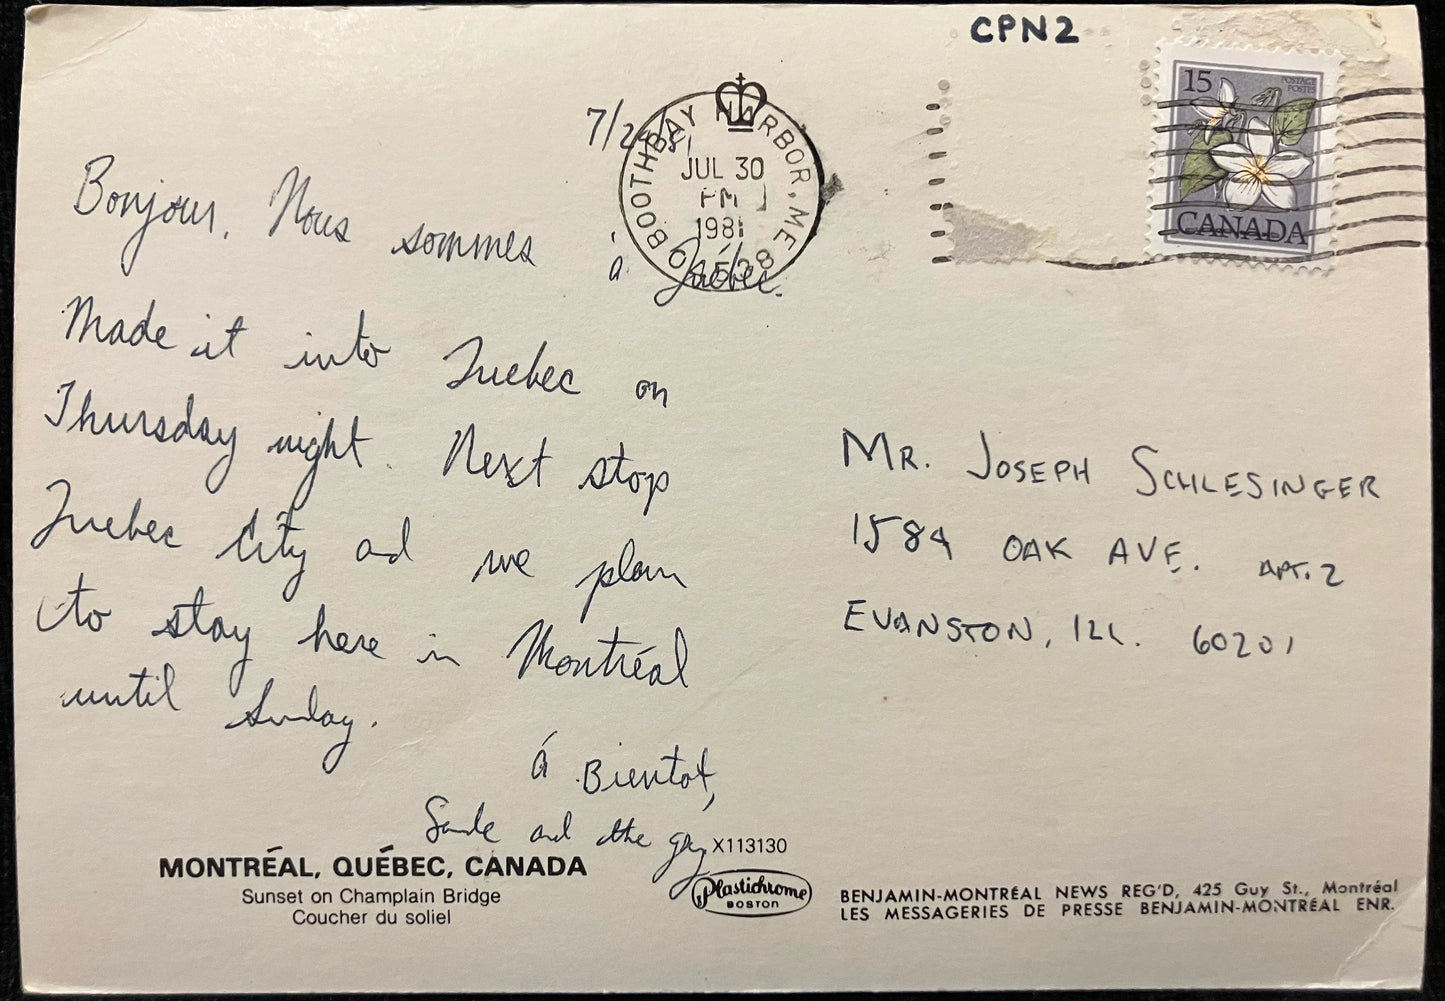 CPN2
15
POSTAGE
POSTES
CANADA
BOOTHBAY HARBOR, ME
04538
JUL 30
PM
1981
7/29/81
Bonjour. Nous sommes à Québec.
Made it into Quebec on
Thursday night. Next stop
Quebec City and we plan
to stay here in Montréal
until Sunday.
á Bientot,
and the
MR. JOSEPH SCHLESINGER
1584 OAK AVE. APT. 2
EVANSTON, ILL. 60201
X113130
MONTRÉAL, QUÉBEC, CANADA
Sunset on Champlain Bridge
Coucher du soliel
Plastichrome
BOSTON
BENJAMIN-MONTRÉAL NEWS REG'D, 425 Guy St., Montréal
LES MESSAGERIES DE PRESSE BENJAMIN-MONTRÉAL ENR.